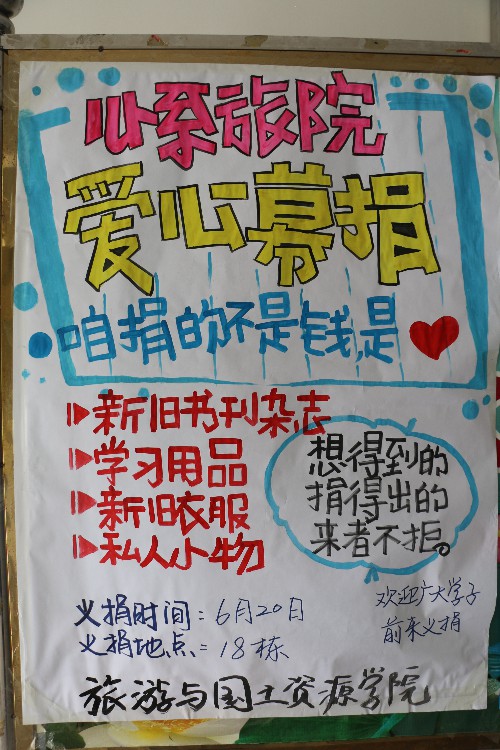 心系旅院
爱心募捐
咱捐的不是钱,是
新旧书刊杂志
学习用品
新旧衣服
私人小物
想得到的
捐得出的
来者不拒。
义捐时间:6月20日
义捐地点:18栋
欢迎广大学子
前来义捐
旅游与国土资源学院